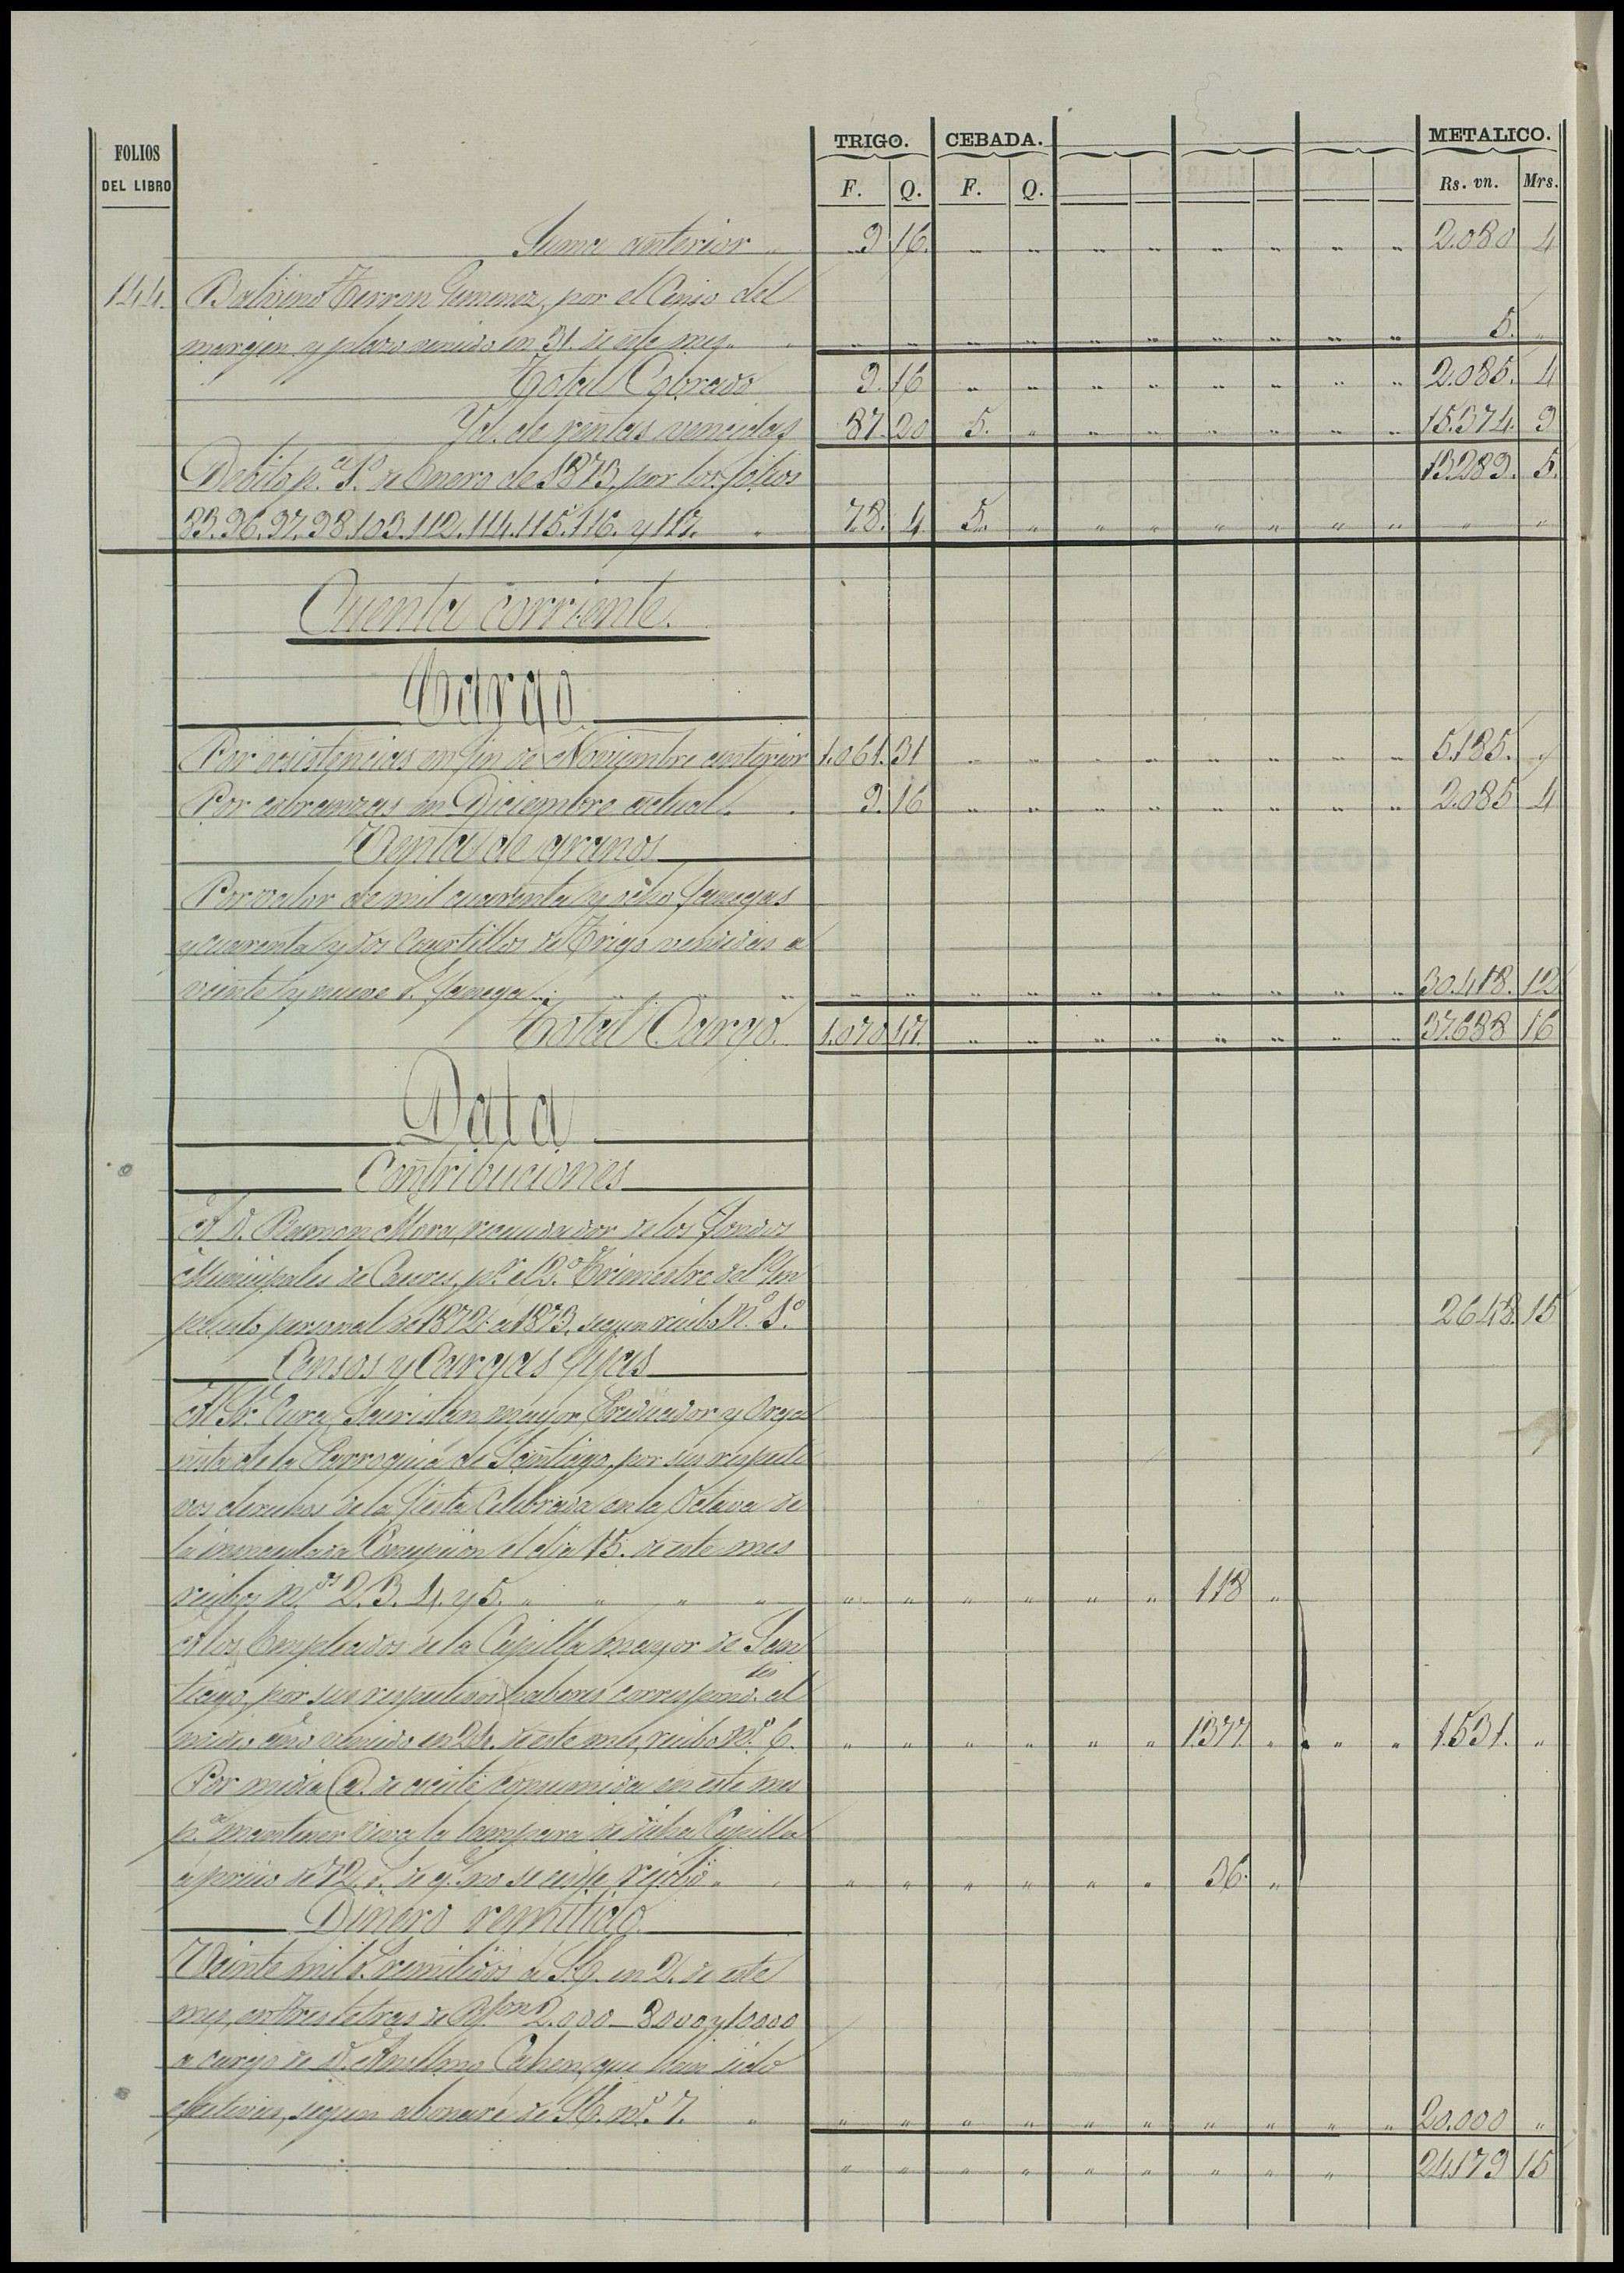 FOLIOS DEL LIBRO TRIGO. CEBADA. METALICO.
F. Q. F. Q. Rs. vn. Mrs.
Suma anterior 9 16 " " " " " " " " 2.080 4
144. Terron Gimenez, por el Censo del
margen y plazo vencido en 31. de este mes. " " " " " " " " " " 5. "
Total Cobrado 9. 16 " " " " " " " " 2.085. 4
Yd. de rentas vencidas 87. 20 5. " " " " " " " 15.374. 9
Debito p.ª 1.º de Enero de 1873, por los folios 13.289. 5.
93. 96. 97. 98. 103. 112. 114. 115. 116. y 117. " 78. 4 5. " " " " " " " " "
Cuenta corriente.
Cargo
Por existencias en fin de Noviembre anterior 1.061. 31 " " " " " " " " 5.185. "
Por cobranzas en Diciembre actual. 9. 16 " " " " " " " " 2.085 4
Ventas de granos
Por valor de mil cuarenta y ocho fanegas
y cuarenta y dos Cuartillos de Trigo vendidas a
veinte y nueve r. fanega " " " " " " " " " " 30.418. 12
Total Cargo. 1.070 47. " " " " " " " " 37.688 16
Data
Contribuciones
A D. Ramon Mora, recaudador de los fondos
Municipales de Caceres, p.r el 2.º Trimestre del Ym
puesto personal de 1872. a 1873, segun recibo N.º 1.º 2648. 15
Censos y Cargas fijas
Al Sr. Cura, Sacristan mayor, Predicador y Orga
nista de la Parroquia de Santiago, por sus respecti
vos derechos de la fiesta Celebrada en la Octava de
la inmaculada Concepcion el dia 15. de este mes
recibos N.os 2. 3. 4. y 5. " " " " " " " " " " 118 "
A los Empleados de la Capilla mayor de San
tiago, por sus respectivos haberes correspond.tes al
medio año vencido en 24. de este mes, recibo N.º 6. " " " " " " 1.377. " " " " 1.531. "
Por media @. de aceite consumida en este mes
p.ª mantener viva la lampara de dicha Capilla
a precio de 72. r. de q.e no se exije recibo " " " " " " " 36. "
Dinero remitido
Veinte mil r. remitidos á S.E. en 2. de este
mes, en tres letras de R.s vn 2.000 - 8000 y 10000
a cargo de D. Cahen, que han sido
efectivas, segun abonaré de S.E. N.º 7. " " " " " " " " " " " 20.000 "
" " " " " " " " " 24179 15